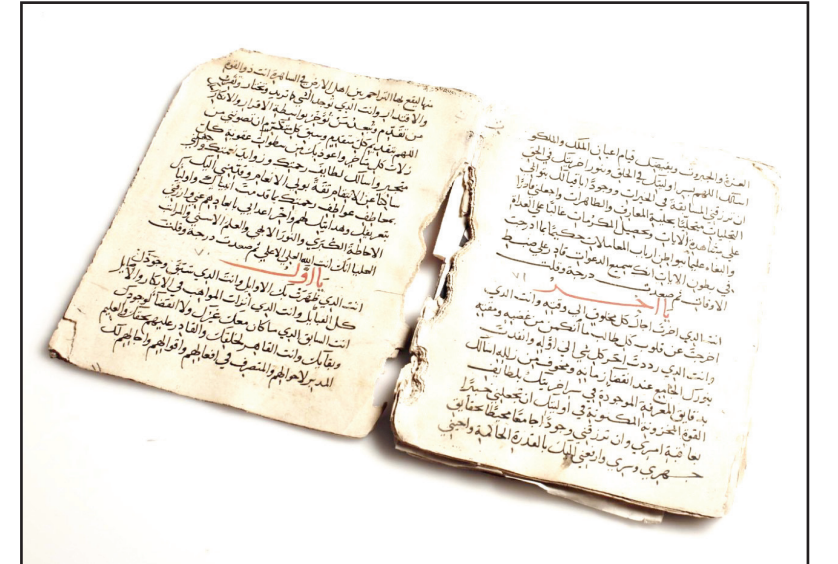 العزة والجبروت وقام اعيان الملك والملكو
اسالك اللهم بسر اوليتك في الخلق وبنور اخريتك في الحق
ان ترزقني المسابقة في الخيرات ووجودا باقيا لك بتوالي
التجليات متحليا بحلية المعارف والطاهرات واجعلني قادرا
على مشاهدة الايات لتحصيل المكرمات غالبا على العداة
والبغاة عليما بمواطن ارباب المعاملات حكيما بما ادرجت
في بطون الايات انك سميع الدعوات قادر على ضبط
الاوقات ثم صعدت درجة وقلت ٧١
يا اخر
انت الذي اخرت اجال كل مخلوق الى وقته وانت الذي
اخرجت عن قلوب كل طالب ما اكمن من غضبه ومقته
وانت الذي رددت اخر كل شي الى اوله وانفذت
بنورك عند انقضا زمانه ومحوت من زلله اسالك
بدقايق المعرفة الموجودة في سر اخريتك ولطايف
القوة المخزونة المكنونة في اوليتك ان تجعلني خبيرا
بعاقبة امري وان ترزقني وجودا جامعا محيطا بحقايق
جهري وسري وارفعني اليك بالقدرة الحاكمة واحيني
منها ليقع بها التراحم بين اهل الارض في الساهرة انت ذو القوة
والاقتدار وانت الذي توجد الشي كما تريد وتختار وتقرب
من تقدم وتبعد من تؤخر بواسطة الاقرار والانكار
اللهم بتقديم كل متقدم وسبق كل مكرم ان تصونني من
زلات كل متاخر واعوذ بك من سطوات عقوبة كل
متحير واسالك لطايف رحمتك وزوايد نعمتك واقي
ساكنا عن الانتقام ثقة بوفى الانعام وقدمني اليك بكل
بتعريفك وهدايتك لهم واخر اعداي بابعادهم عني وارزقني
الاحاطة الكبرى والنور الابهى والعلم الاسنى والمراتب
العليا انك انت الله العلي الاعلى ثم صعدت درجة وقلت ٧٠
يا اول
انت الذي ظهرت بك الاوايل وانت الذي سبق وجودك
كل القبايل وانت الذي انزلت المواهب في الابكار والاصايل
انت السابق الذي ما كان معك غيرك ولا انقضا لوجودك
وبقايك وانت القاهر لخلقك والقادر عليهم بحقك والعليم
المدبر لاحوالهم والمتصرف في افعالهم واقوالهم واجالهم لك